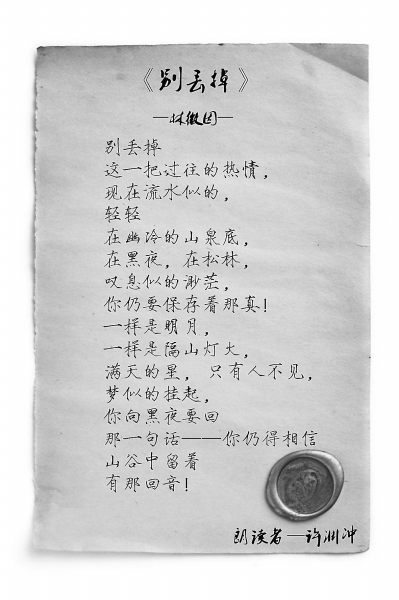 《别丢掉》
—林徽因—
别丢掉
这一把过往的热情，
现在流水似的，
轻轻
在幽冷的山泉底，
在黑夜，在松林，
叹息似的渺茫，
你仍要保存着那真！
一样是明月，
一样是隔山灯火，
满天的星，只有人不见，
梦似的挂起，
你向黑夜要回
那一句话——你仍得相信
山谷中留着
有那回音！
朗读者—许渊冲